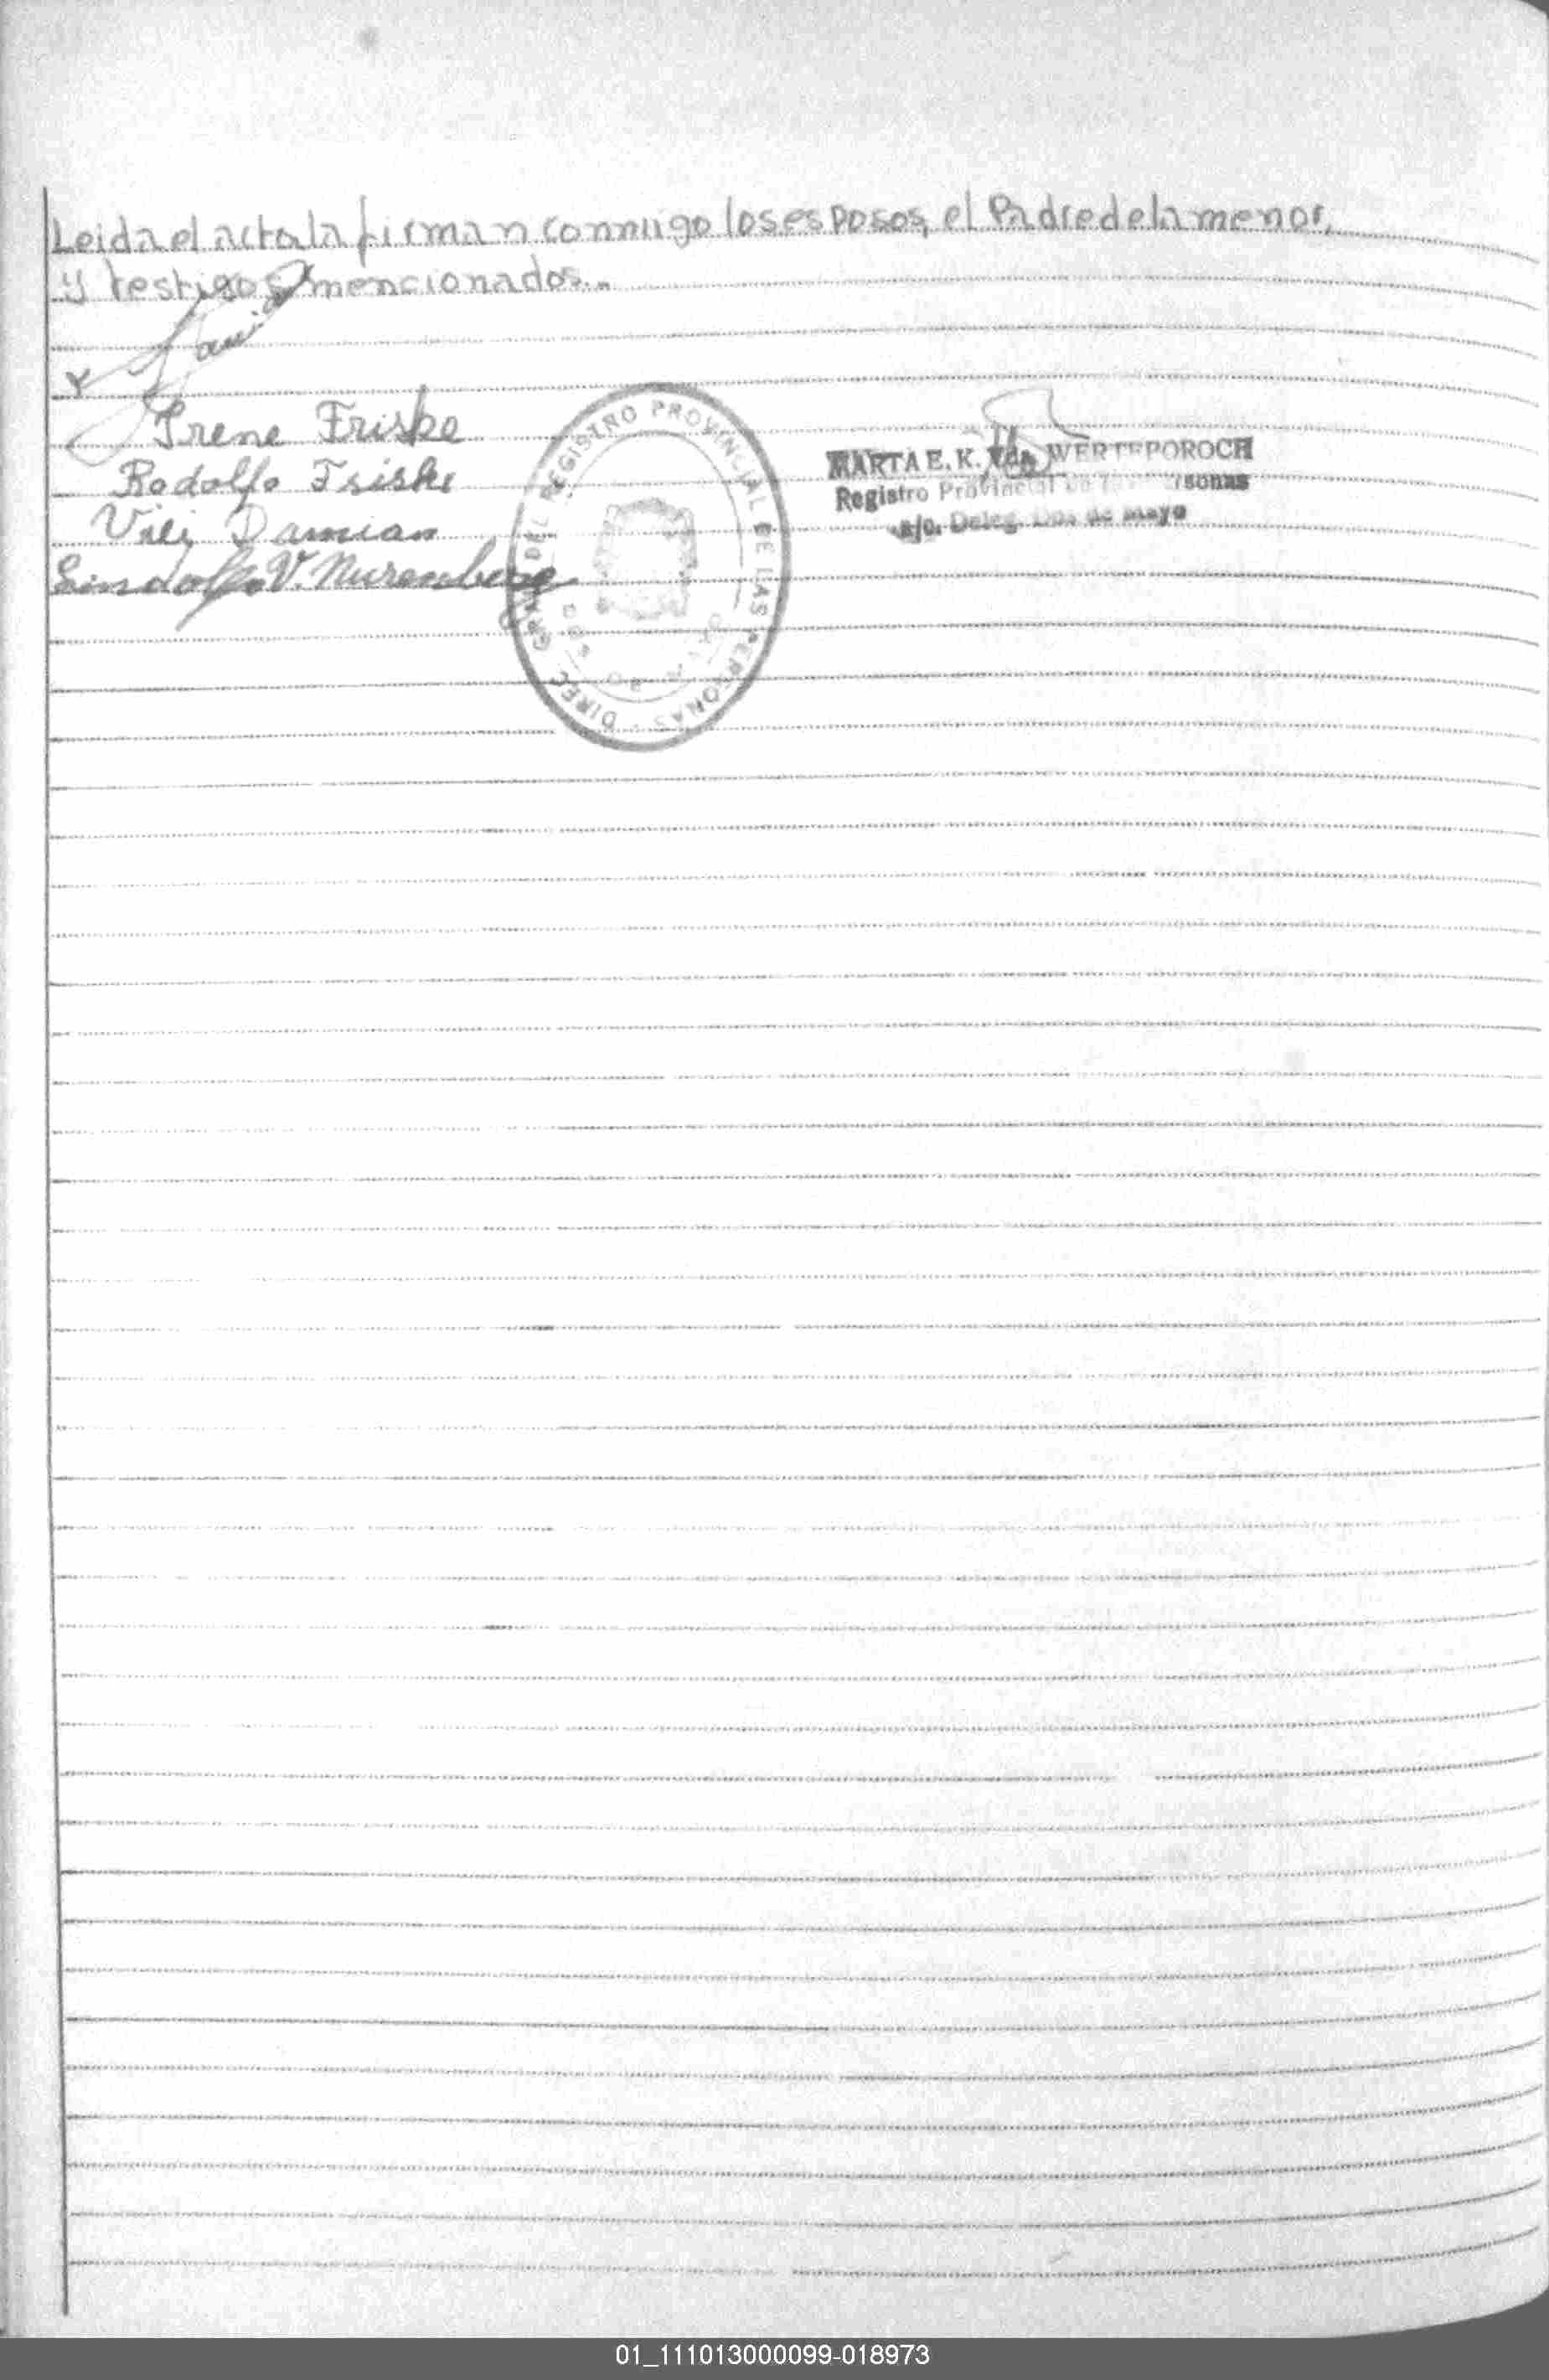 Leida el acta la firman conmigo los esposos, el Padre de la menor,
y testigos mencionados..
Irene Friske
Rodolfo Friske
Vili Damian
Lindolfo V. Nurenberg
DIREC GRAL DEL REGISTRO PROVINCIAL DE LAS PERSONAS
MARTA E. K. Vda. WERTEPOROCH
Registro Provincial
a/c. Deleg. Dos de Mayo
01_111013000099-018973